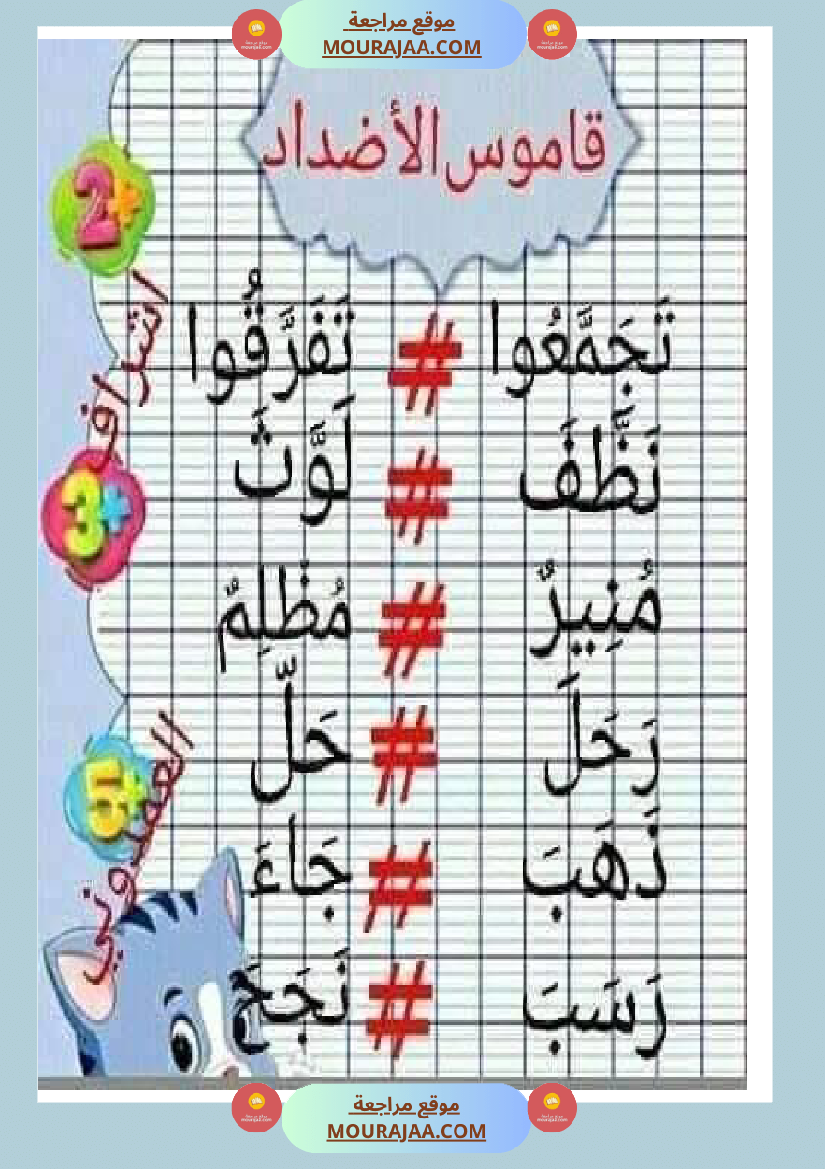 موقع مراجعة
MOURAJAA.COM
قاموس الأضداد
تَجَمَّعُوا # تَفَرَّقُوا
نَظَّفَ # لَوَّثَ
مُنِيرٌ # مُظْلِمٌ
رَحَلَ # حَلَّ
ذَهَبَ # جَاءَ
رَسَبَ # نَجَحَ
2+
اشراف
3+
العمدوني
5+
موقع مراجعة
MOURAJAA.COM